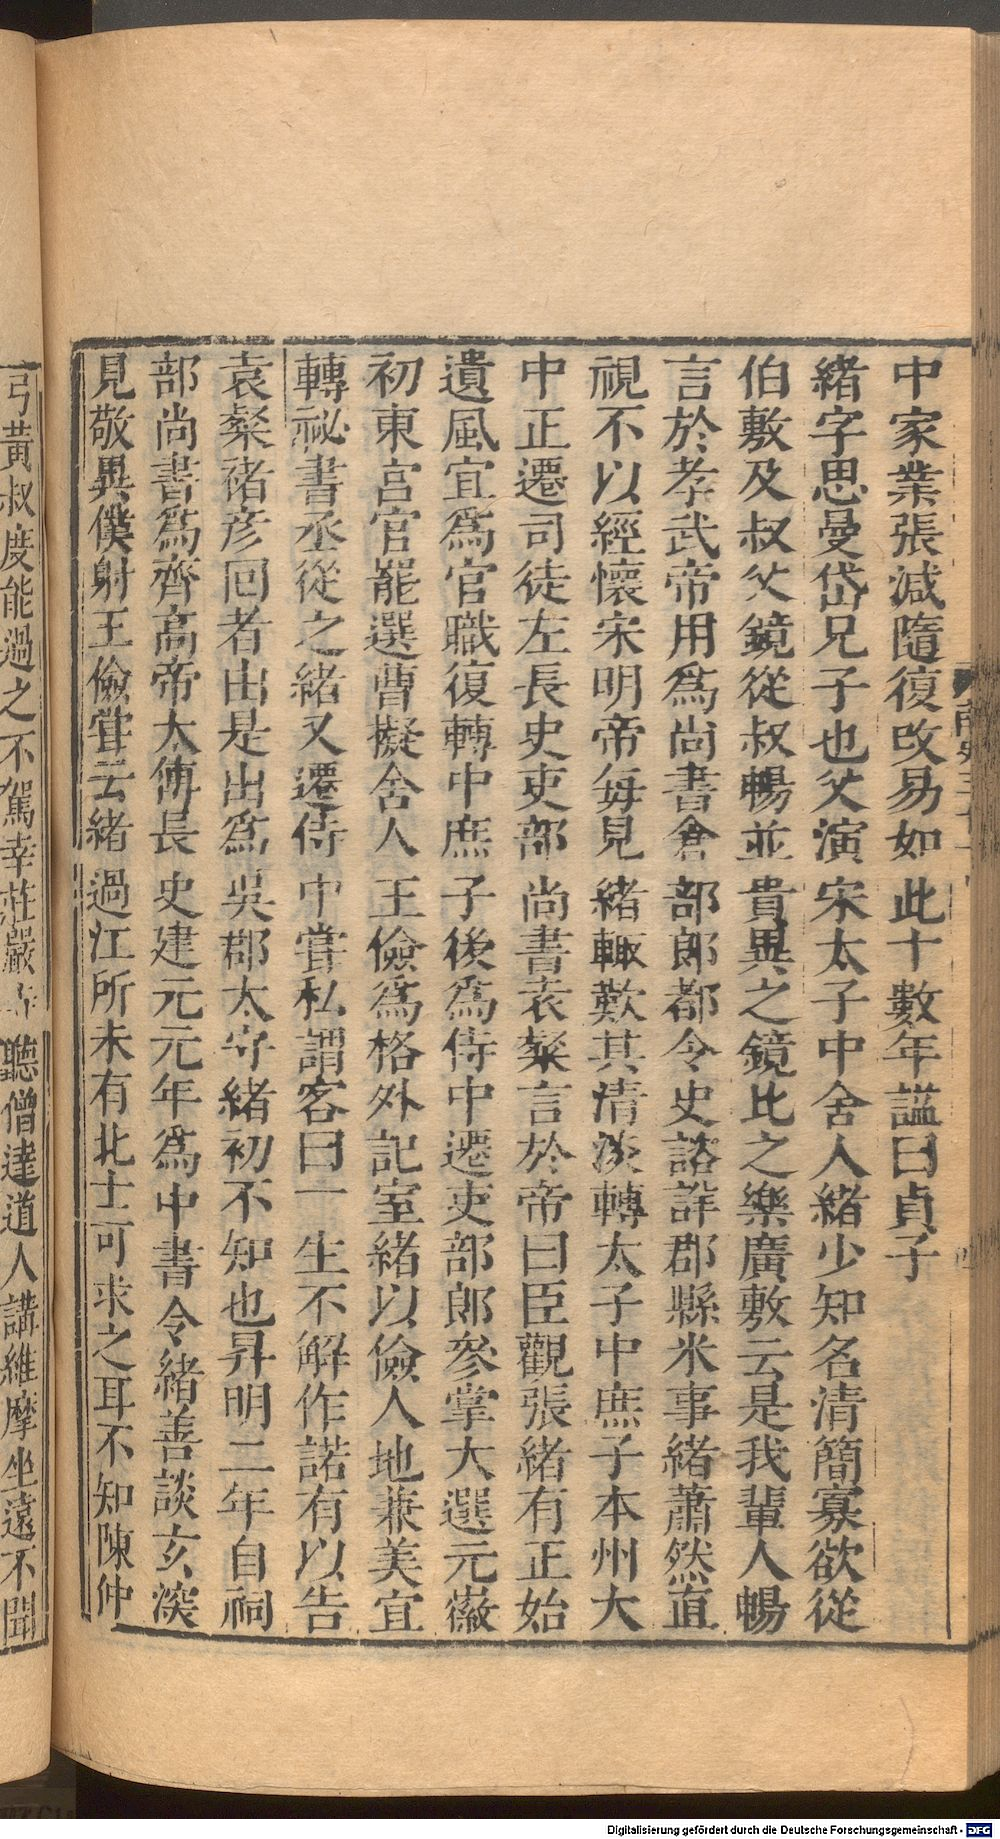 中家業張減隨復改易如此十數年謚曰貞子
緒字思曼岱兄子也父演宋太子中舍人緒少知名清簡寡欲從
伯敷及叔父鏡從叔暢並貴異之鏡比之樂廣敷云是我輩人暢
言於孝武帝用爲尚書倉部郎都令史諮詳郡縣米事緒蕭然直
視不以經懷宋明帝每見緒輒歎其清淡轉太子中庶子本州大
中正遷司徒左長史吏部尚書袁粲言於帝曰臣觀張緒有正始
遺風宜爲官職復轉中庶子後爲侍中遷吏部郎參掌大選元徽
初東宮官罷選曹擬舍人王儉爲格外記室緒以儉人地兼美宜
轉祕書丞從之緒又遷侍中嘗私謂客曰一生不解作諾有以告
袁粲褚彦回者由是出爲吳郡太守緒初不知也昇明二年自祠
部尚書爲齊高帝太傅長史建元元年爲中書令緒善談玄深
見敬異僕射王儉嘗云緒過江所未有北士可求之耳不知陳仲
弓黃叔度能過之不駕幸莊嚴寺聽僧達道人講維摩坐遠不聞
Digitalisierung gefördert durch die Deutsche Forschungsgemeinschaft - DFG